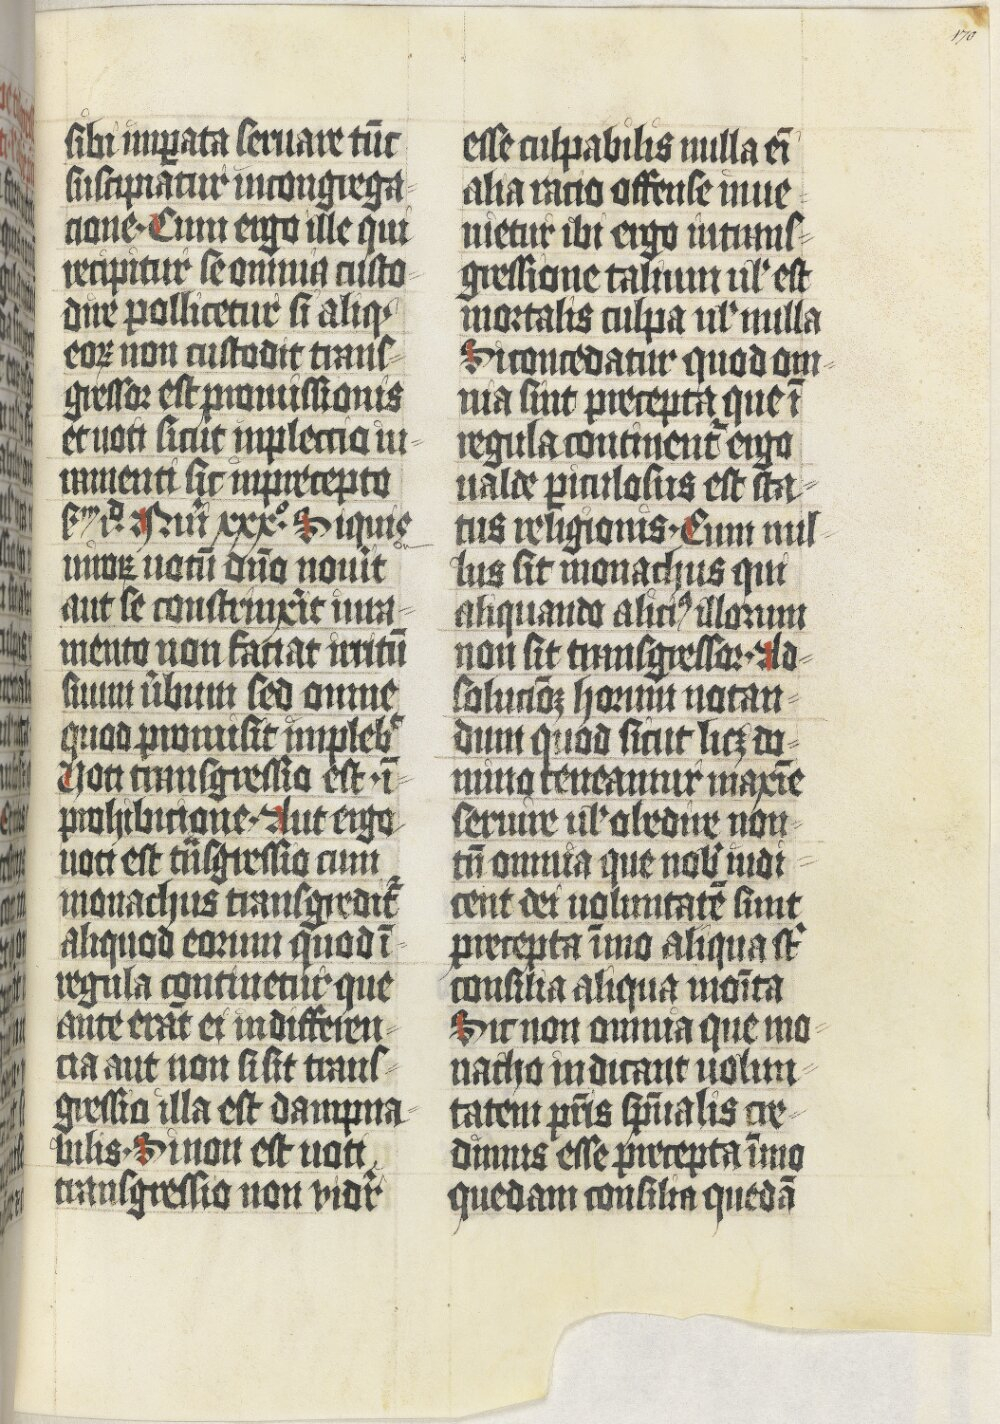 170
sibi imp̲ata seruare tūc
suscipiātur in congrega
cione. Cum ergo ille qui
recipitur se omnia custo
dire pollicetur si aliqꝰ
eoꝝ non custodit trans
gressor est promissionis
et uoti sicut inpleccio iu
ramenti sic in precepto
Nūi xxxº. Siquis
uiroꝝ uotū dn̄o nouit
aut se constrinxit iura
mento non faciat irritū
suum ũbum sed omne
quod promisit implebᵗ
Uoti transgressio est. ī
prohibicione. Aut ergo
uoti est tͣnsgressio cum
monachus transgreditᷣ
aliquod eorum quod ī
regula continetur que
ante erāt ei indifferen
cia aut non si sit trans
gressio illa est dampna
bilis. Si non est uoti
transgressio non vidr̄
esse culpabilis nulla eī
alia racio offense inue
nietur ibi ergo in trans
gressione talium ul̓ est
mortalis culpa ul̓ nulla
Si concedatur quod om
nia sint precepta que ī
regula continentᷣ ergo
ualde p̲iculosus est sta
tus religionis. Cum nul
lus sit monachus qui
aliquando alicꝰ illorum
non sit transgressor. Ad
solucōꝫ horum notan
dum quod sicut licꝫ do
mino teneamur maxīe
seruire ul̓ obedire non
tn̄ omnia que nob̓ indi
cent dei uoluntatē sunt
precepta īmo aliqua st̄
consilia aliqua moīta
Sic non omnia que mo
nacho indicant uolun
tatem pr̄is sp̄ualis cre
dimus esse precepta īmo
quedam consilia quedā